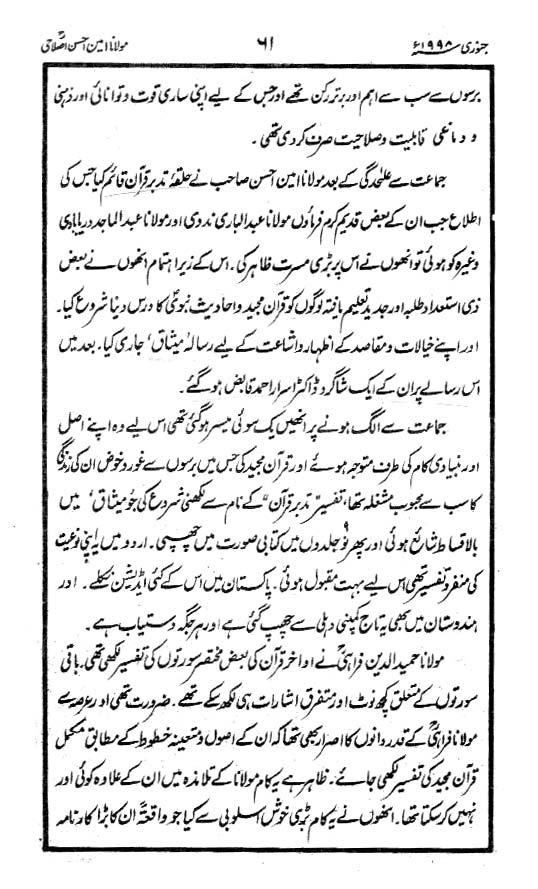 جنوری ۱۹۹۸ء ۶۱ مولانا امین احسن اصلاحیؒ
برسوں سے سب سے اہم اور برتر رکن تھے اور جس کے لیے اپنی ساری قوت و توانائی اور ذہنی
و دماغی قابلیت و صلاحیت صرف کر دی تھی۔
جماعت سے علٰحدگی کے بعد مولانا امین احسن صاحب نے حلقۂ تدبر قرآن قائم کیا جس کی
اطلاع جب ان کے بعض قدیم کرم فرماؤں مولانا عبدالباری ندوی اور مولانا عبدالماجد دریابادی
وغیرہ کو ہوئی تو انھوں نے اس پر بڑی مسرت ظاہر کی۔ اس کے زیر اہتمام انھوں نے بعض
ذی استعداد طلبہ اور جدید تعلیم یافتہ لوگوں کو قرآن مجید و احادیث نبویؐ کا درس دینا شروع کیا۔
اور اپنے خیالات و مقاصد کے اظہار و اشاعت کے لیے رسالہ ’میثاق‘ جاری کیا۔ بعد میں
اس رسالے پر ان کے ایک شاگرد ڈاکٹر اسرار احمد قابض ہو گئے۔
جماعت سے الگ ہونے پر انھیں یک سوئی میسر ہو گئی تھی اس لیے وہ اپنے اصل
اور بنیادی کام کی طرف متوجہ ہوئے اور قرآن مجید کی جس میں برسوں سے غور و خوض ان کی زندگی
کا سب سے محبوب مشغلہ تھا، تفسیر ”تدبر قرآن“ کے نام سے لکھنی شروع کی جو ’میثاق‘ میں
بالاقساط شائع ہوئی اور پھر نو جلدوں میں کتابی صورت میں چھپی۔ اردو میں یہ اپنی نوعیت
کی منفرد تفسیر تھی اس لیے بہت مقبول ہوئی۔ پاکستان میں اس کے کئی اڈیشن نکلے۔ اور
ہندوستان میں بھی یہ تاج کمپنی دہلی سے چھپ گئی ہے اور ہر جگہ دستیاب ہے۔
مولانا حمید الدین فراہیؒ نے اواخر قرآن کی بعض مختصر سورتوں کی تفسیر لکھی تھی۔ باقی
سورتوں کے متعلق کچھ نوٹ اور متفرق اشارات ہی لکھ سکے تھے۔ ضرورت تھی اور عرصے سے
مولانا فراہیؒ کے قدر دانوں کا اصرار بھی تھا کہ ان کے اصول و متعینہ خطوط کے مطابق مکمل
قرآن مجید کی تفسیر لکھی جائے۔ ظاہر ہے یہ کام مولانا کے تلامذہ میں ان کے علاوہ کوئی اور
نہیں کر سکتا تھا۔ انھوں نے یہ کام بڑی خوش اسلوبی سے کیا جو واقعۃً ان کا بڑا کارنامہ